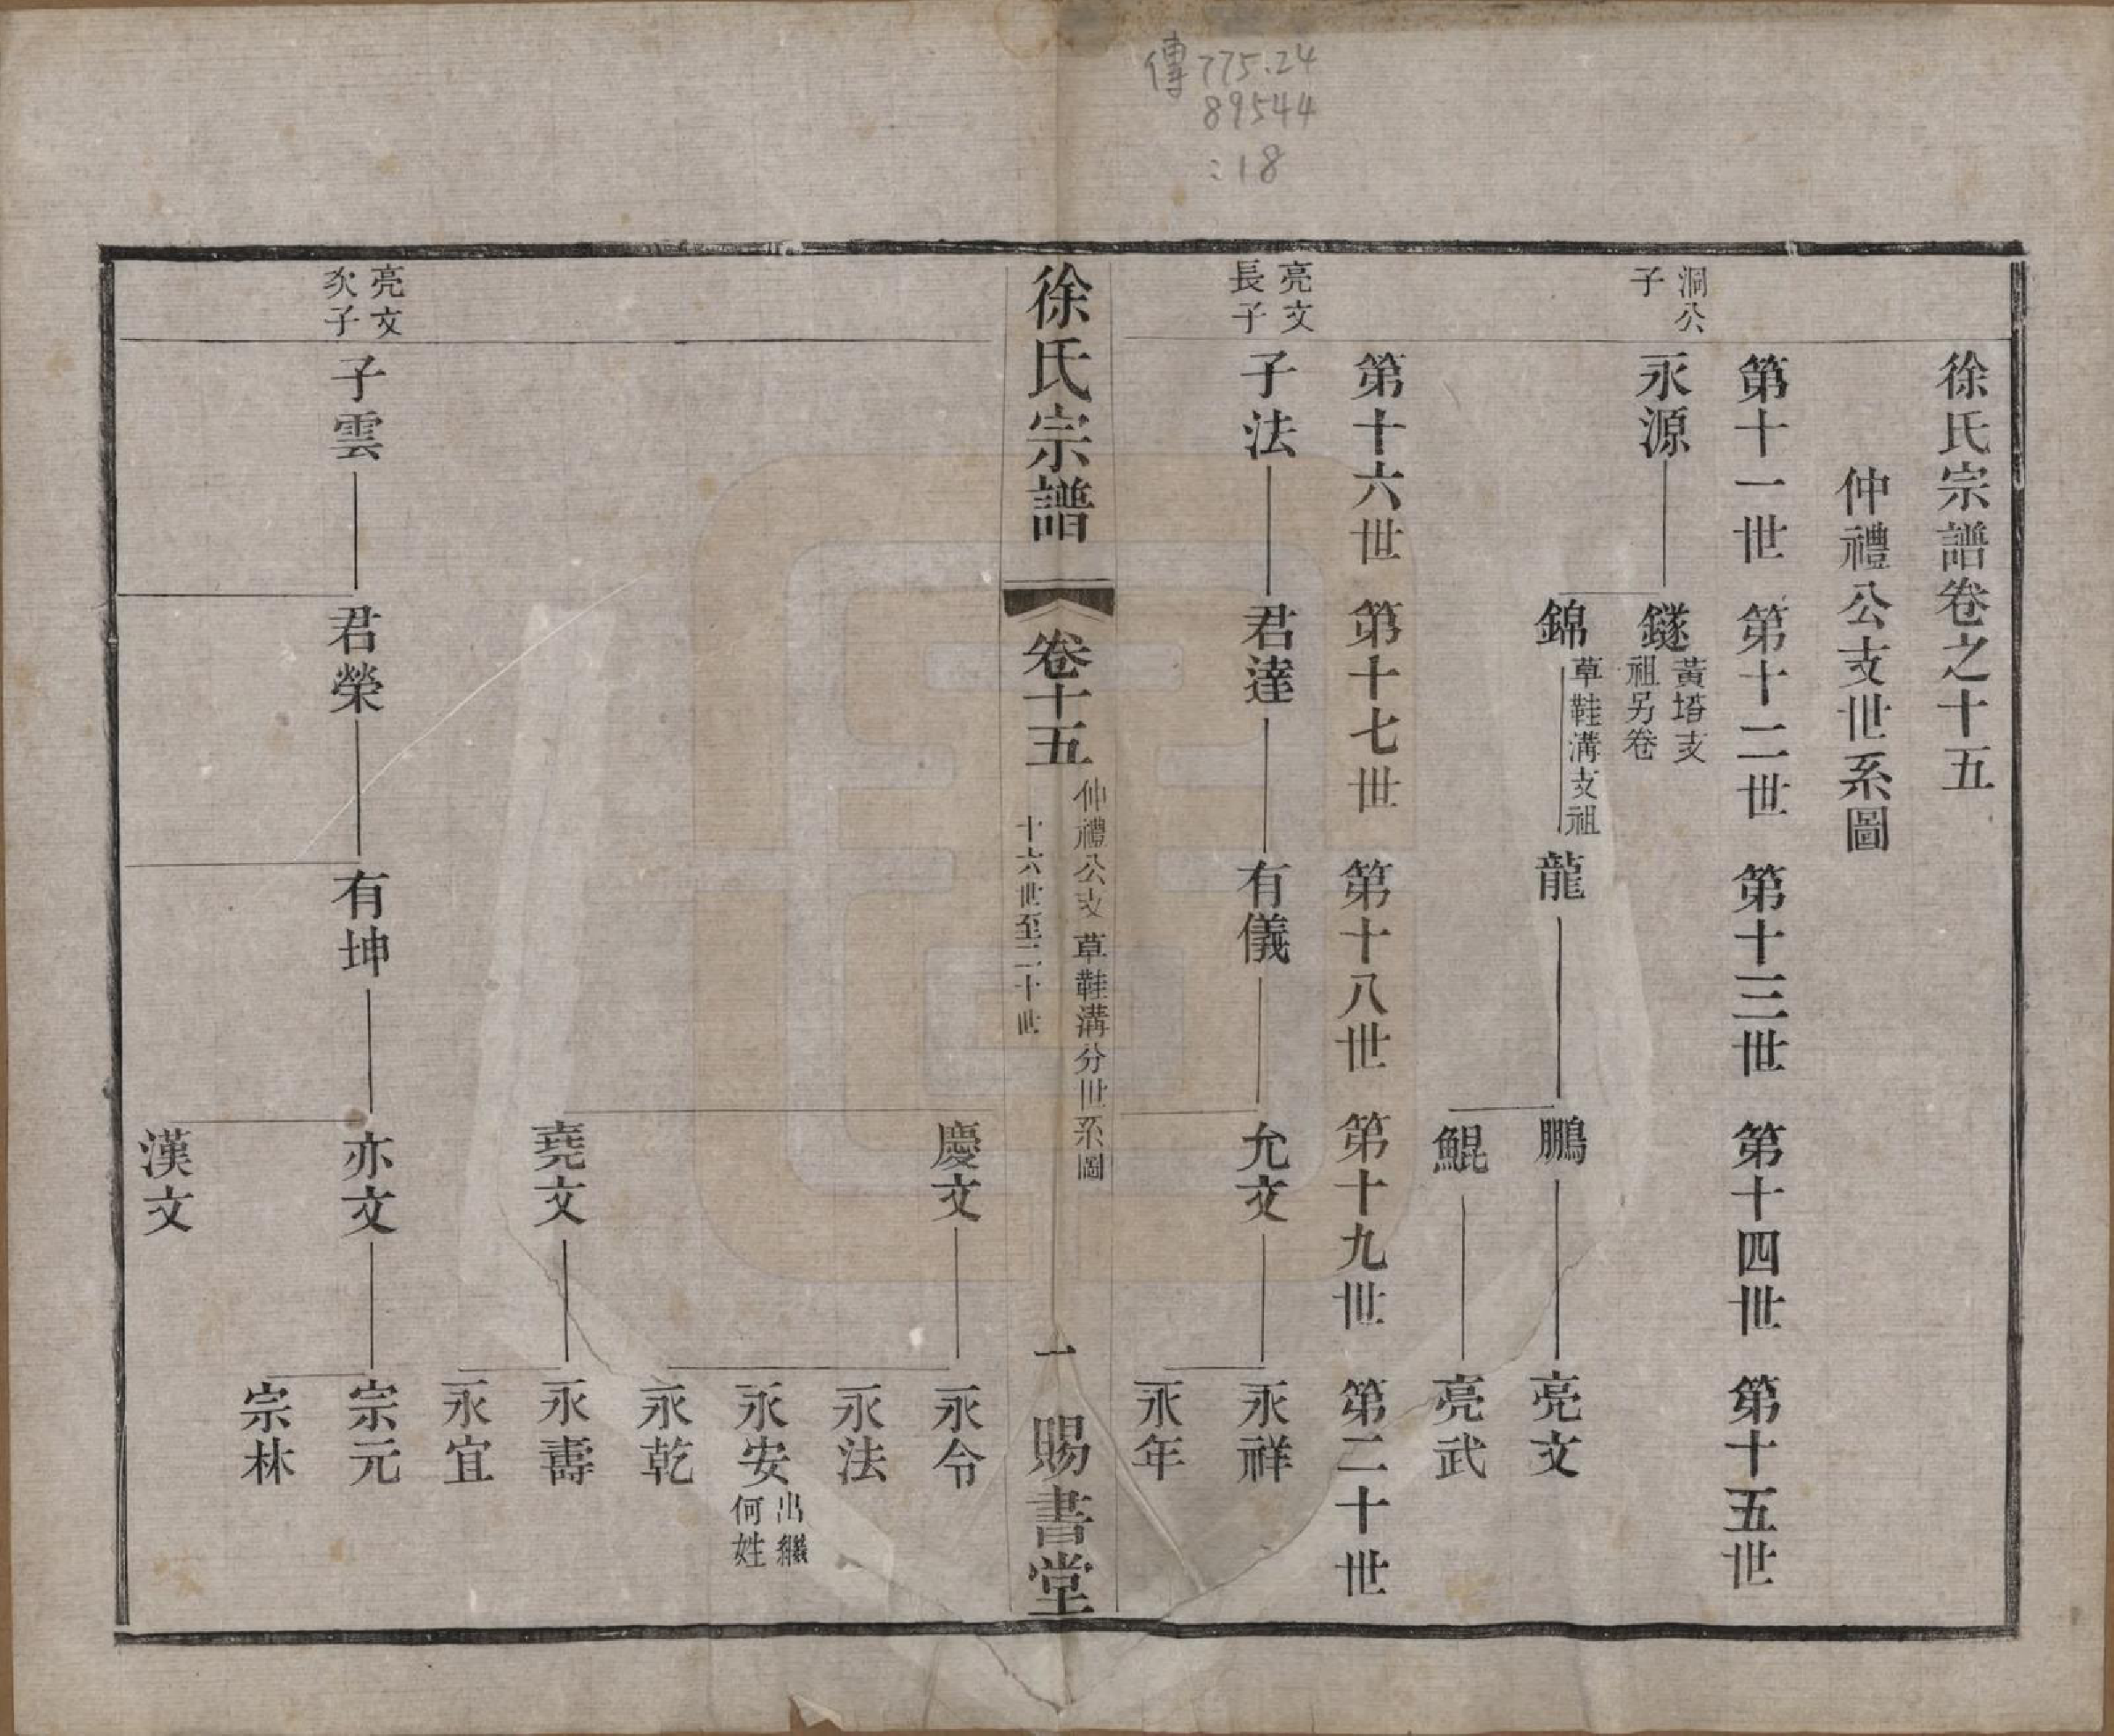 傳 775.24
89544
:18
徐氏宗譜卷之十五
仲禮公支世系圖
第十一世 第十二世 第十三世 第十四世 第十五世
洞公
子
永源 鐩 黃㙮支
祖另卷
錦 草鞋溝支祖 龍 鵬 亮文
鯤 亮武
第十六世 第十七世 第十八世 第十九世 第二十世
亮文
長子
子法 君達 有儀 允文 永祥
永年
徐氏宗譜 卷十五 仲禮公支 草鞋溝分世系圖
十六世至二十世
一 賜書堂
慶文 永令
永法
永安 出繼
何姓
永乾
堯文 永壽
永宜
亮文
次子
子雲 君榮 有坤 亦文 宗元
宗林
漢文